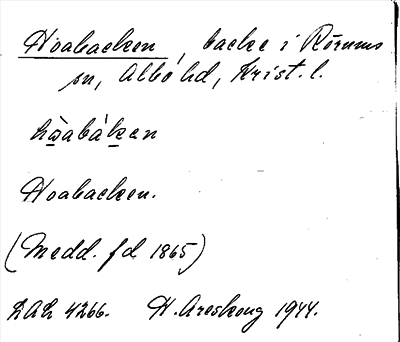 Hoabacken, backe i Rörums
sn, Albo hd, Krist. l.
hòabák̲en
Hoabacken.
(Medd. fd 1865)
LAL 4266. H. Areskoug 1944.